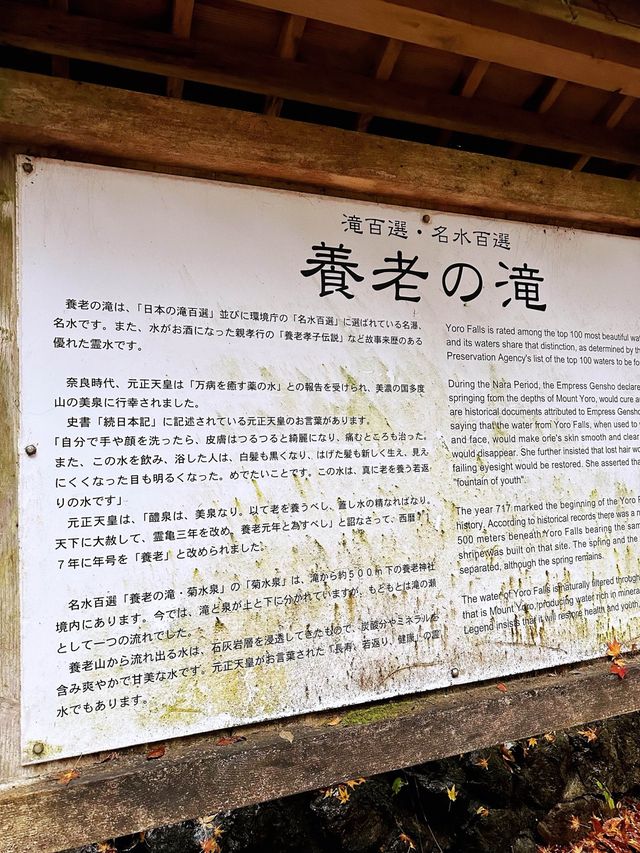 滝百選・名水百選
養老の滝
養老の滝は、「日本の滝百選」並びに環境庁の「名水百選」に選ばれている名瀑、
名水です。また、水がお酒になった親孝行の「養老孝子伝説」など故事来歴のある
優れた霊水です。
奈良時代、元正天皇は「万病を癒す薬の水」との報告を受けられ、美濃の国多度
山の美泉に行幸されました。
史書「続日本記」に記述されている元正天皇のお言葉があります。
「自分で手や顔を洗ったら、皮膚はつるつると綺麗になり、痛むところも治った。
また、この水を飲み、浴した人は、白髪も黒くなり、はげた髪も新しく生え、見え
にくくなった目も明るくなった。めでたいことです。この水は、真に老を養う若返
りの水です」
元正天皇は、「醴泉は、美泉なり。以て老を養うべし、蓋し水の精なればなり。
天下に大赦して、霊亀三年を改め、養老元年と為すべし」と詔なさって、西暦７１
７年に年号を「養老」と改められました。
名水百選「養老の滝・菊水泉」の「菊水泉」は、滝から約５００ｍ下の養老神社
境内にあります。今では、滝と泉が上と下に分かれていますが、もともとは滝の瀬
として一つの流れでした。
養老山から流れ出る水は、石灰岩層を浸透してきたもので、炭酸分やミネラルを
含み爽やかで甘美な水です。元正天皇がお言葉された「長寿、若返り、健康」の霊
水でもあります。
Yoro Falls is rated among the top 100 most beautiful
and its waters share that distinction, as determined by
Preservation Agency's list of the top 100 waters to be
During the Nara Period, the Empress Gensho
springing from the depths of Mount Yoro, would cure
are historical documents attributed to Empress
saying that the water from Yoro Falls, when used
and face, would make one's skin smooth and
would disappear. She further insisted that lost hair
failing eyesight would be restored. She asserted
"fountain of youth".
The year 717 marked the beginning of the Yoro
history. According to historical records there was a
500 meters beneath Yoro Falls bearing the
shrine was built on that site. The spring and the
separated, although the spring remains.
The water of Yoro Falls is naturally filtered through
that is Mount Yoro, producing water rich in
Legend insists that it will restore health and youth